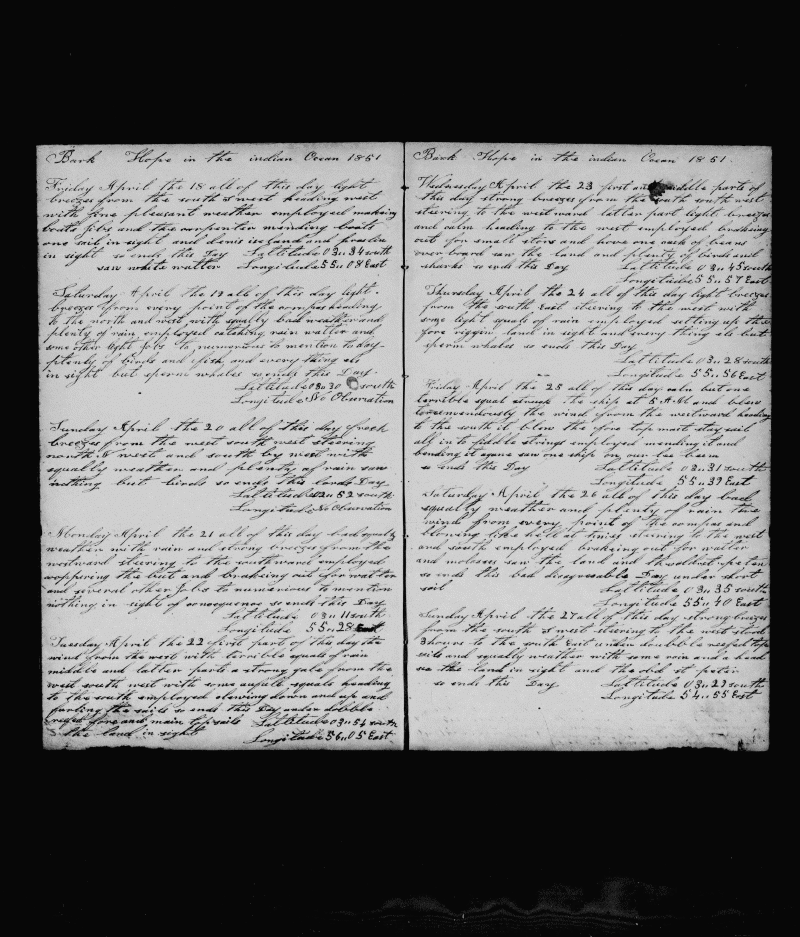 Bark Hope in the indian Ocean 1851
Friday April the 18 all of this day light
breezes from the south & west heading west
with fine pleasant weather employed making
boats jibs and the carpenter mending boats
one sail in sight and denis island and
in sight so ends this Day Lattitude 03"34 south
saw white watter Longitude 55"08 East
Saturday April the 19 all of this day light
breezes from every point of the compas heading
to the north and west with squally bad weather and
plenty of rain employed catching rain watter and
some other light jobs to numurous to mention to day
plenty of birds and fish and every thing els
in sight but sperm whales so ends this Day
Lattitude 03"30 south
Longitude No Obseration
Sunday April the 20 all of this day fresh
breezes from the west south west steering
north N west and south by west with
squally weather and plenty of rain saw
nothing but birds so ends this lords Day
Lattitude 52 south
Longitude No Obseration
Monday April the 21 all of this day bad squaly
weather with rain and strong breezes from the
westward steering to the southward employed
wopping the but and brakeing out for watter
and several other Jobs to numurious to mention
nothing in sight of consequence so ends this Day
Lattitude 03"11 south
Longitude 55"28 East
Tuesday April the 22 first part of this day the
wind from the west with terrible squals of rain
middle and latter parts a strong gale from the
west south west with some squals heading
to the south employed clewing down and up and
furling the sails so ends this Day under dobble
reefed fore and main top sails Lattitude 03"54 south
the land in sight Longitude 56"05 East
Bark Hope in the indian Ocean 1851
Wednesday April the 23 first and middle parts of
this day strong breezes from the south south west
steering to the westward latter part light breezes
and calm heading to the west employed brakeing
out for small stors and hove one cask of beans
over board saw the land and plenty of birds and
sharks so ends this Day Lattitude 03"45 south
Longitude 55"57 East
Thursday April the 24 all of this day light breezes
from the south East steering to the west with
some light squals of rain employed setting up the
fore riggin land in sight and every thing els but
sperm whales so ends this Day
Lattitude 03"28 south
Longitude 55"56 East
Friday April the 25 all of this day calm but one
terrible squal struck the ship at 5 A M and blew
the wind from the westward heading
to the south it blew the fore top mast staysail
all in to fiddle strings employed mending it and
bending it again saw one ship on our lee beem
so ends this Day Lattitude 03"31 south
Longitude 55"39 East
Saturday April the 26 all of this day bad
squally weather and plenty of rain the
wind from every point of the compas and
blowing like hell at times steering to the west
and south employed brakeing out for watter
and molasses saw the land and
so ends this bad disagreeable Day under short
sail Lattitude 03"35 south
Longitude 55"40 East
Sunday April the 27 all of this day strong breezes
from the south & west steering to the west stood
3 hours to the south East under dobble reefed top
sails and squally weather with some rain and a head
sea the land in sight and the
so ends this Day Lattitude 03"29 south
Longitude 54"55 East